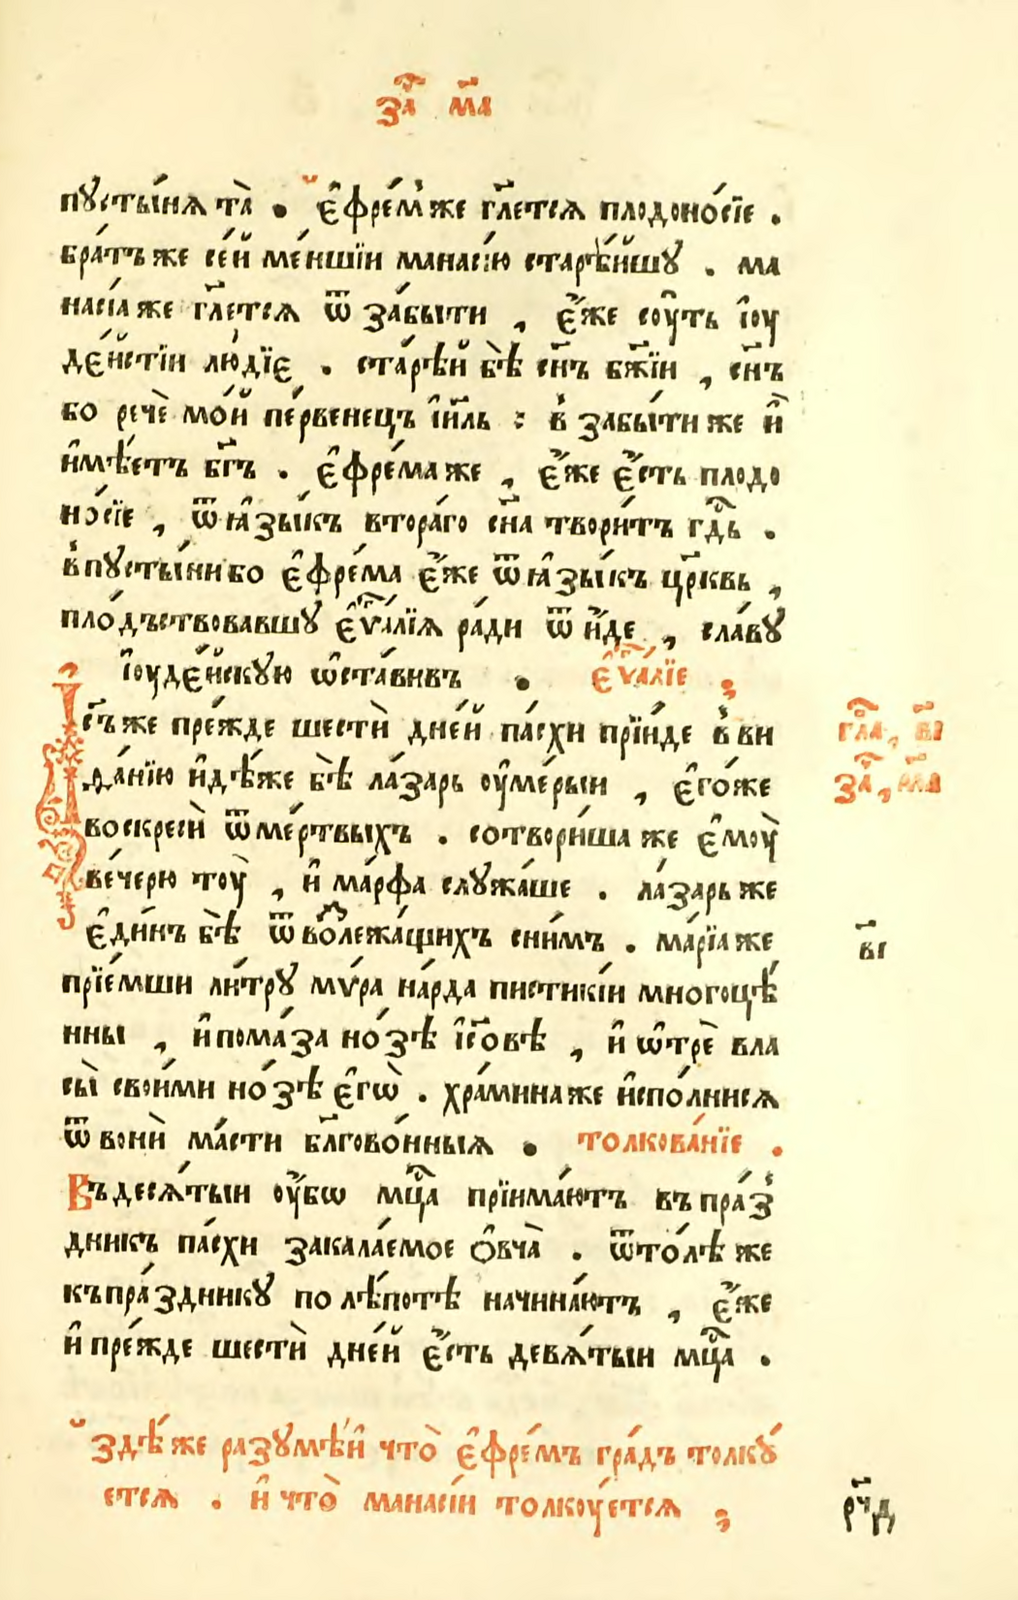 за҇ м҃а
пꙋсты́нѧ та̀ . є҆фре́м же гл҃етсѧ плодоно́сїе .
бра́тъ же се́й ме́ншїи манасі́ю старѣ́йшꙋ . ма
насі́а же гл҃етсѧ ѿ забы́ти , є҆́же сꙋ́ть і҆оу
де́йстїи лю́дїе . старѣ́й бѣ̀ сн҃ъ бж҃їи , сн҃ъ
бо речѐ мо́й пе́рвенецъ і҆и҃ль : в забы́ти же и҆
и҆мѣ́етъ бг҃ъ . є҆фре́ма же , є҆́же є҆́сть плодо
но́сїе , ѿ ꙗ҆зы́къ втора́го сн҃а твори́тъ гд҇ь .
в пꙋсты́ни бо є҆фре́ма є҆́же ѿ ꙗ҆зы́къ цр҃квь ,
пло́дъствовавшꙋ є҆ѵⷢ҇алїѧ ра́ди ѿи́де , сла́вꙋ
і҆оуде́йскꙋю ѡ҆ста́вивъ . є҆ѵⷢ҇алїе ;
І҆с҃ъ же пре́жде шестѝ дне́й па́схи прїи́де в ви
да́нїю и҆дѣ́же бѣ̀ ла́зарь оу҆ме́рыи , є҆го́же
воскресѝ ѿ ме́ртвыхъ . сотвори́ша же є҆моу̀
ве́черю тоу̀ , и҆ ма́рфа слꙋжа́ше . ла́зарь же
є҆ди́нъ бѣ̀ ѿ во́лежа́щихъ сни́мъ . ма́рїа же
прїе́мши ли́трꙋ мѵ́ра на́рда писти́кїи многоцѣ́
нны , и҆ пома́за но́зѣ і҆с҃овѣ , и҆ ѡ҆трѐ вла
сы̀ свои́ми но́зѣ є҆гѡ̀ . хра́мина же и҆спо́лнисѧ
ѿ вонѝ ма́сти бл҃гово́нныѧ . толкова́нїе .
Въ десѧ́тыи оу҆́бѡ мц҇а прїима́ютъ въ пра́з
дникъ па́схи закала́емое ѻ҆вча̀ . ѿто́лѣ же
къ пра́здникꙋ по лѣ́потѣ начина́ютъ , є҆́же
и҆ пре́жде шестѝ дне́й є҆́сть девѧ́тыи мц҇а .
здѣ́ же разꙋмѣ́й что̀ є҆фре́мъ гра́дъ толкꙋ́
етсѧ . и҆ что̀ манасі́и толкоу́етсѧ ;
гл҇а , в҃і
за҇ , м҃а
в҃і
рч҃д